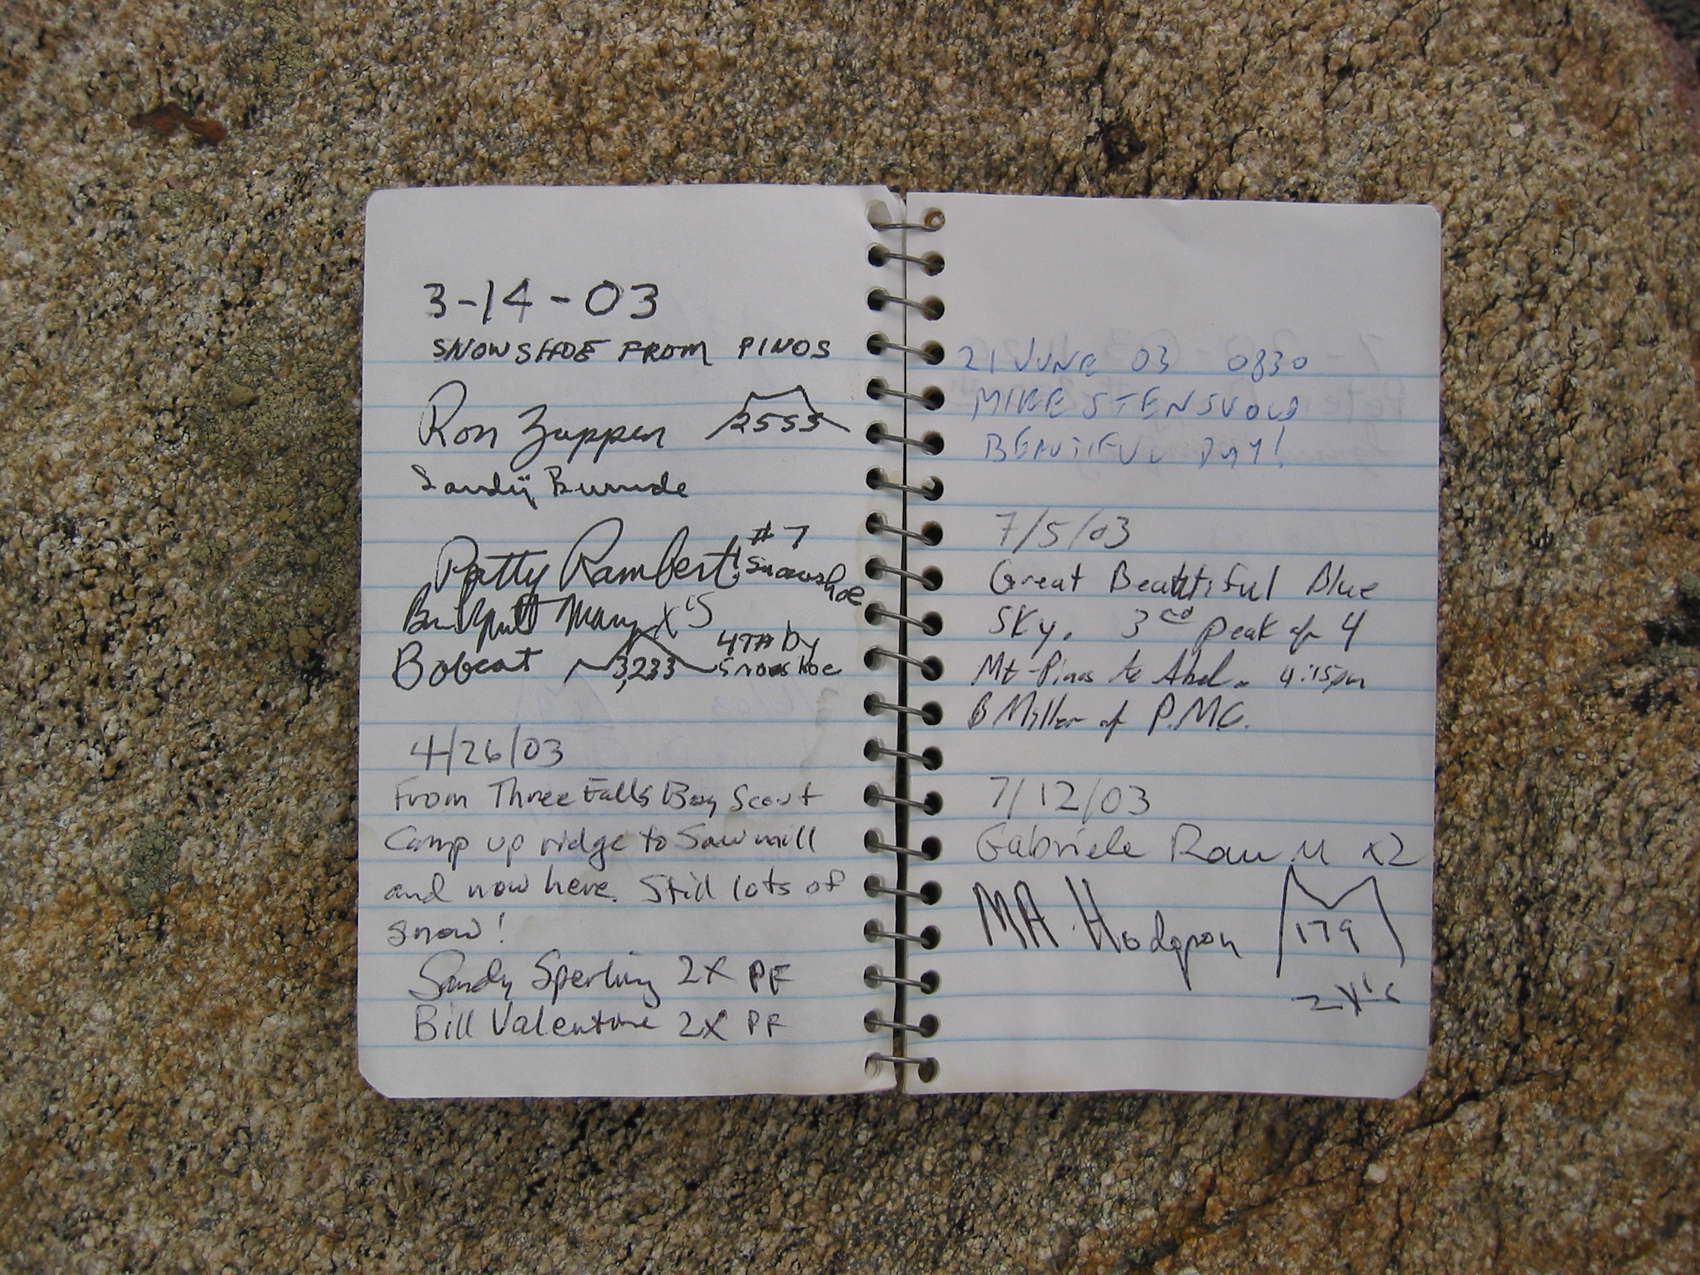 3-14-03
SNOWSHOE FROM PINOS
Ron Zappen 2555
Sandy
Patty Rambert! #7 snowshoe
X'5
Bobcat 3,233 4TH by Snowshoe
4/26/03
From Three Falls Boy Scout
Camp up ridge to Sawmill
and now here. Still lots of
snow!
Sandy Sperling 2X PF
Bill Valentine 2X PF
21 JUNE 03 0830
MIKE STENSVOLD
BEAUTIFUL DAY!
7/5/03
Great Beautiful Blue
Sky. 3rd peak of 4
Mt. Pinos to Abel. 4:15pm
B Miller of P.M.C.
7/12/03
Gabriele Rau M x2
MA. Hodgson 179
2X's